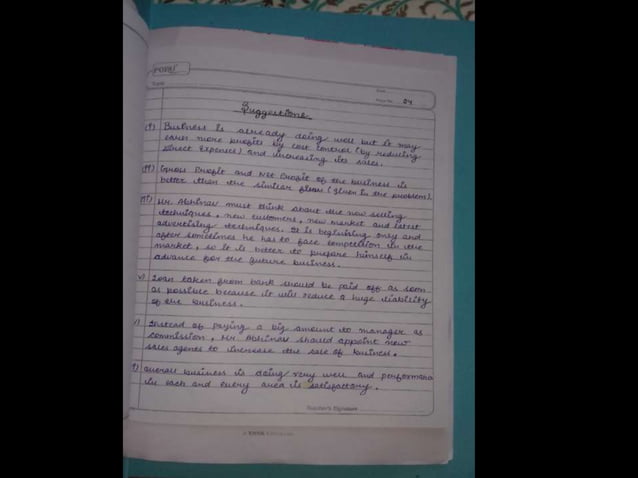 Date
Page No. 04
Suggestions.
(i) Business is already doing well but it may
earn more profits by cost control (by reducing
direct Expenses) and increasing its sales.
(ii) Gross Profit and Net Profit of the business is
better than the similar firm (given in the problem).
(iii) Mr. Abhinav must think about the new selling
techniques, new customers, new market and latest
advertising techniques. It is beginning only and
after sometimes he has to face competition in the
market, so it is better to prepare himself in
advance for the future business.
v) Loan taken from bank should be paid off as soon
as possible because it will reduce a huge liability
of the business.
) Instead of paying a big amount to manager as
commission, Mr Abhinav should appoint new
sales agents to increase the sale of business.
) Overall business is doing very well and performance
in each and every area is satisfactory.
Teacher's Signature